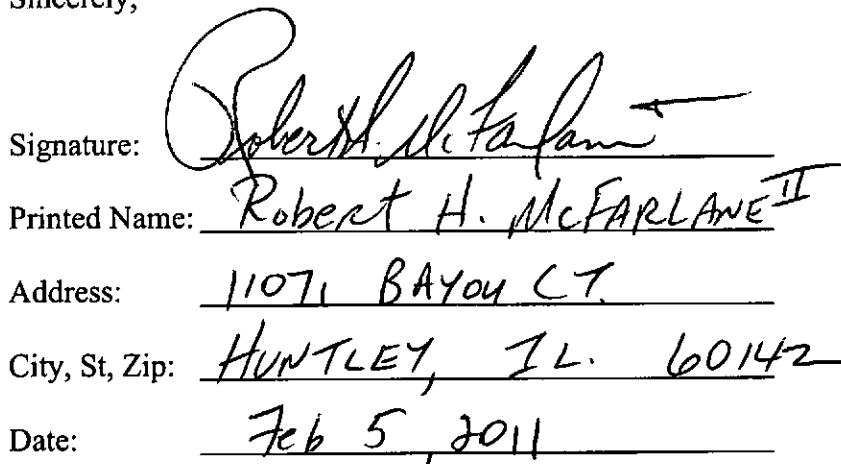 Sincerely,
Signature: Robert H. McFarlane
Printed Name: Robert H. McFARLANE II
Address: 11071 BAYOU CT.
City, St, Zip: HUNTLEY, IL. 60142
Date: Feb 5, 2011